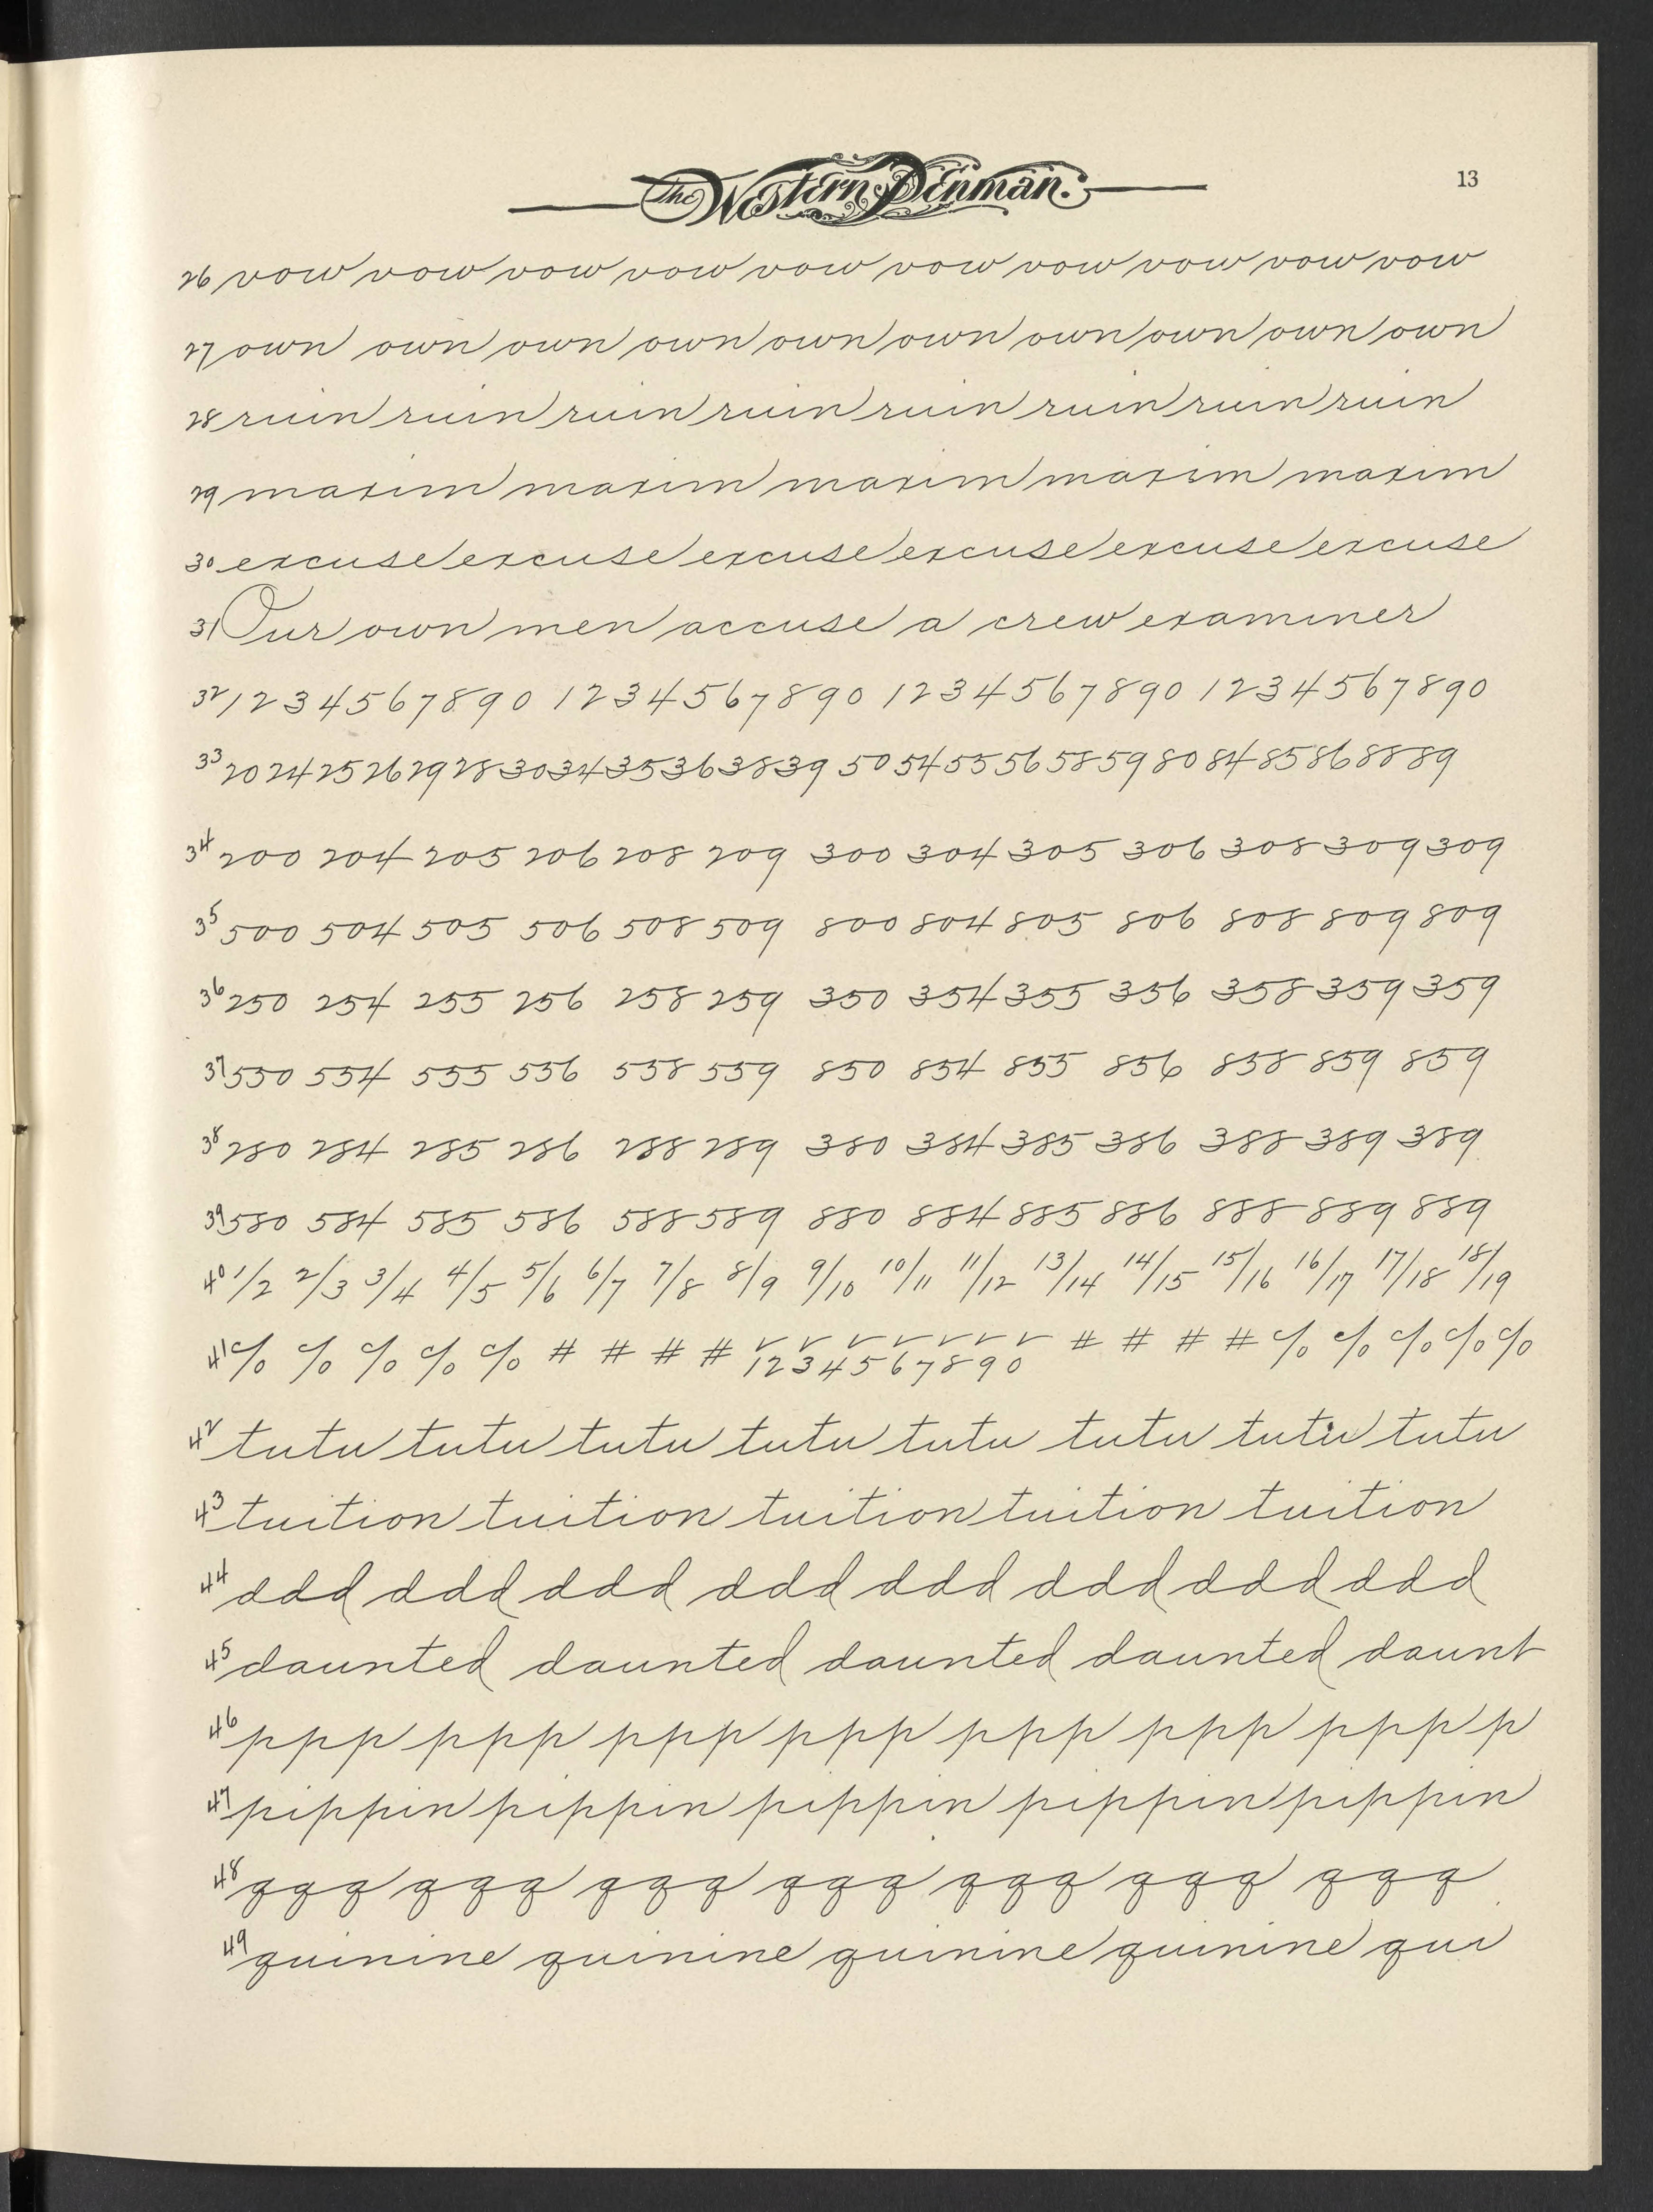 The Western Penman.
13
26 vow vow vow vow vow vow vow vow vow vow
27 own own own own own own own own own own
28 ruin ruin ruin ruin ruin ruin ruin ruin
29 maxim maxim maxim maxim maxim
30 excuse excuse excuse excuse excuse excuse
31 Our own men accuse a crew examiner
32 1 2 3 4 5 6 7 8 9 0 1 2 3 4 5 6 7 8 9 0 1 2 3 4 5 6 7 8 9 0 1 2 3 4 5 6 7 8 9 0
33 20 24 25 26 29 28 30 34 35 36 38 39 50 54 55 56 58 59 80 84 85 86 88 89
34 200 204 205 206 208 209 300 304 305 306 308 309 309
35 500 504 505 506 508 509 800 804 805 806 808 809 809
36 250 254 255 256 258 259 350 354 355 356 358 359 359
37 550 554 555 556 558 559 850 854 855 856 858 859 859
38 280 284 285 286 288 289 380 384 385 386 388 389 389
39 580 584 585 586 588 589 880 884 885 886 888 889 889
40 1/2 2/3 3/4 4/5 5/6 6/7 7/8 8/9 9/10 10/11 11/12 13/14 14/15 15/16 16/17 17/18 18/19
41 % % % % % # # # # ✓ ✓ ✓ ✓ ✓ ✓ ✓ # # # # % % % % %
1 2 3 4 5 6 7 8 9 0
42 tutu tutu tutu tutu tutu tutu tutu tutu
43 tuition tuition tuition tuition tuition
44 ddd ddd ddd ddd ddd ddd ddd ddd
45 daunted daunted daunted daunted daunt
46 ppp ppp ppp ppp ppp ppp pppp
47 pippin pippin pippin pippin pippin
48 qqq qqq qqq qqq qqq qqq qqq
49 quinine quinine quinine quinine qui